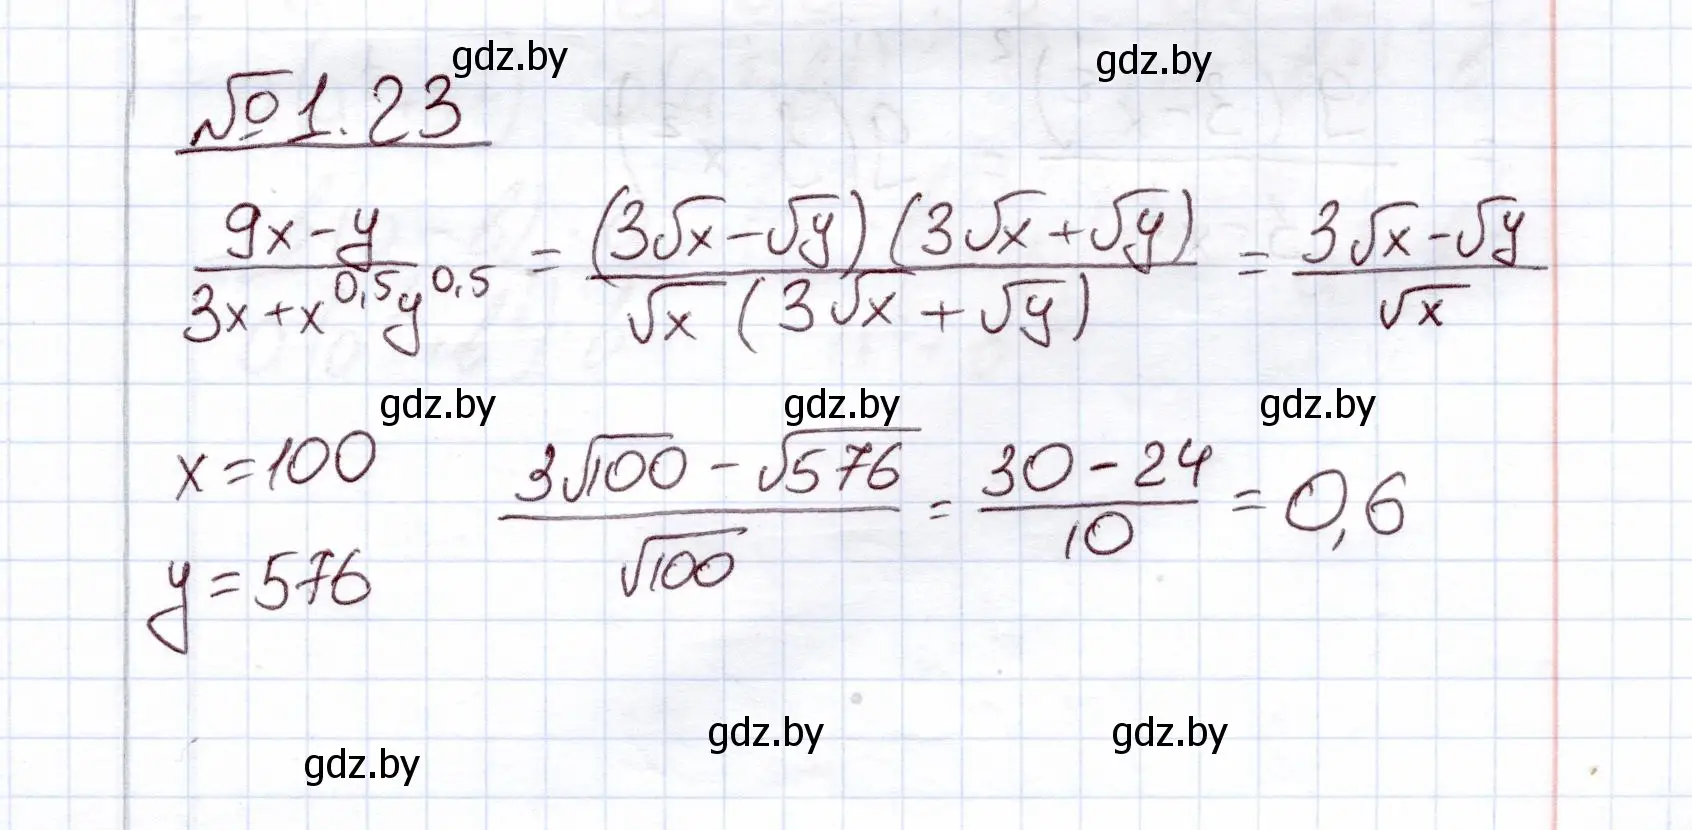 gdz.by gdz.by
№1.23
(9x-y)/(3x+x^0,5 y^0,5) = ((3√x-√y)(3√x+√y))/(√x(3√x+√y)) = (3√x-√y)/√x
gdz.by gdz.by gdz.by
x=100 (3√100-√576)/√100 = (30-24)/10 = 0,6
y=576
gdz.by gdz.by
gdz.by